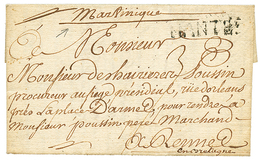 Martinique
NANTES
A Monsieur
Monsieur Poussin
procureur au siege presidial, rue dorleans
près la place D'armes, pour rendre a
Monsieur poussin Marchand
A Rennes
en Bretagne